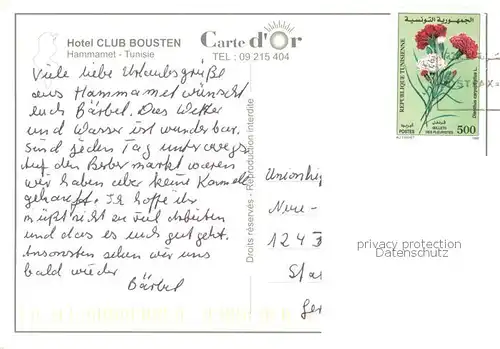 Hotel CLUB BOUSTEN
Hammamet - Tunisie
Carte d'Or
TEL : 09 215 404
Viele liebe Urlaubsgrüße
aus Hammamet wünscht
euch Bärbel. Das Wetter
und Wasser ist wunderbar.
Sind jeden Tag unterwegs
Auf den Berber markt waren
wir haben aber keine Kamele
gekauft. Ich hoffe ihr
müßt nicht zu viel Arbeiten
und das es euch gut geht.
Ansonsten sehen wir uns
bald wieder
Bärbel
Droits réservés - Reproduction interdite
الجمهورية التونسية
REPUBLIQUE TUNISIENNE
قرنفل
OEILLETS
DES FLEURISTES
POSTES
500
Neu-
124
Sta
Ger
privacy protection
Datenschutz